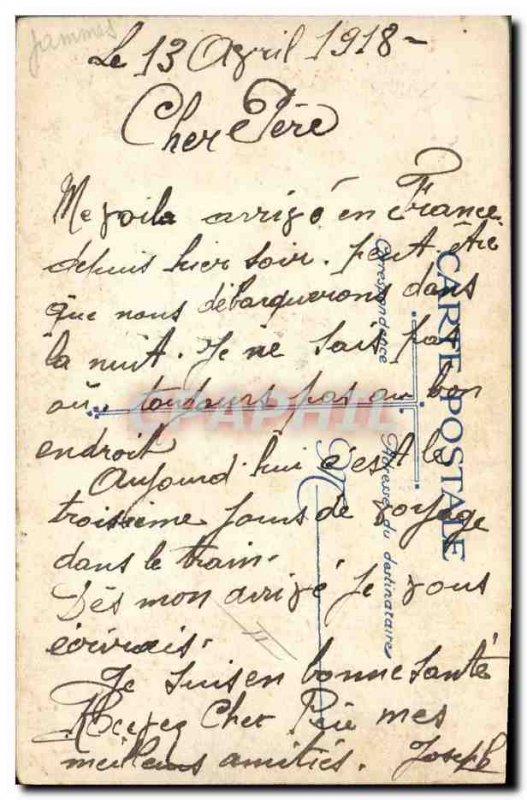 jammes
Le 13 Avril 1918 -
Cher Père
Me voila arrivé en France
depuis hier soir. peut être
que nous débarquerons dans
la nuit. Je ne sais pas
où, toujours pas au bon
endroit
Aujourd'hui c'est le
troisième jours de voyage
dans le train.
Dès mon arrivé Je vous
écrirais.
Je suis en bonne santé
Recevez Cher Père mes
meilleurs amitiés. Joseph
CARTE POSTALE
Correspondance
Adresse du destinataire
M
CPAPHIL